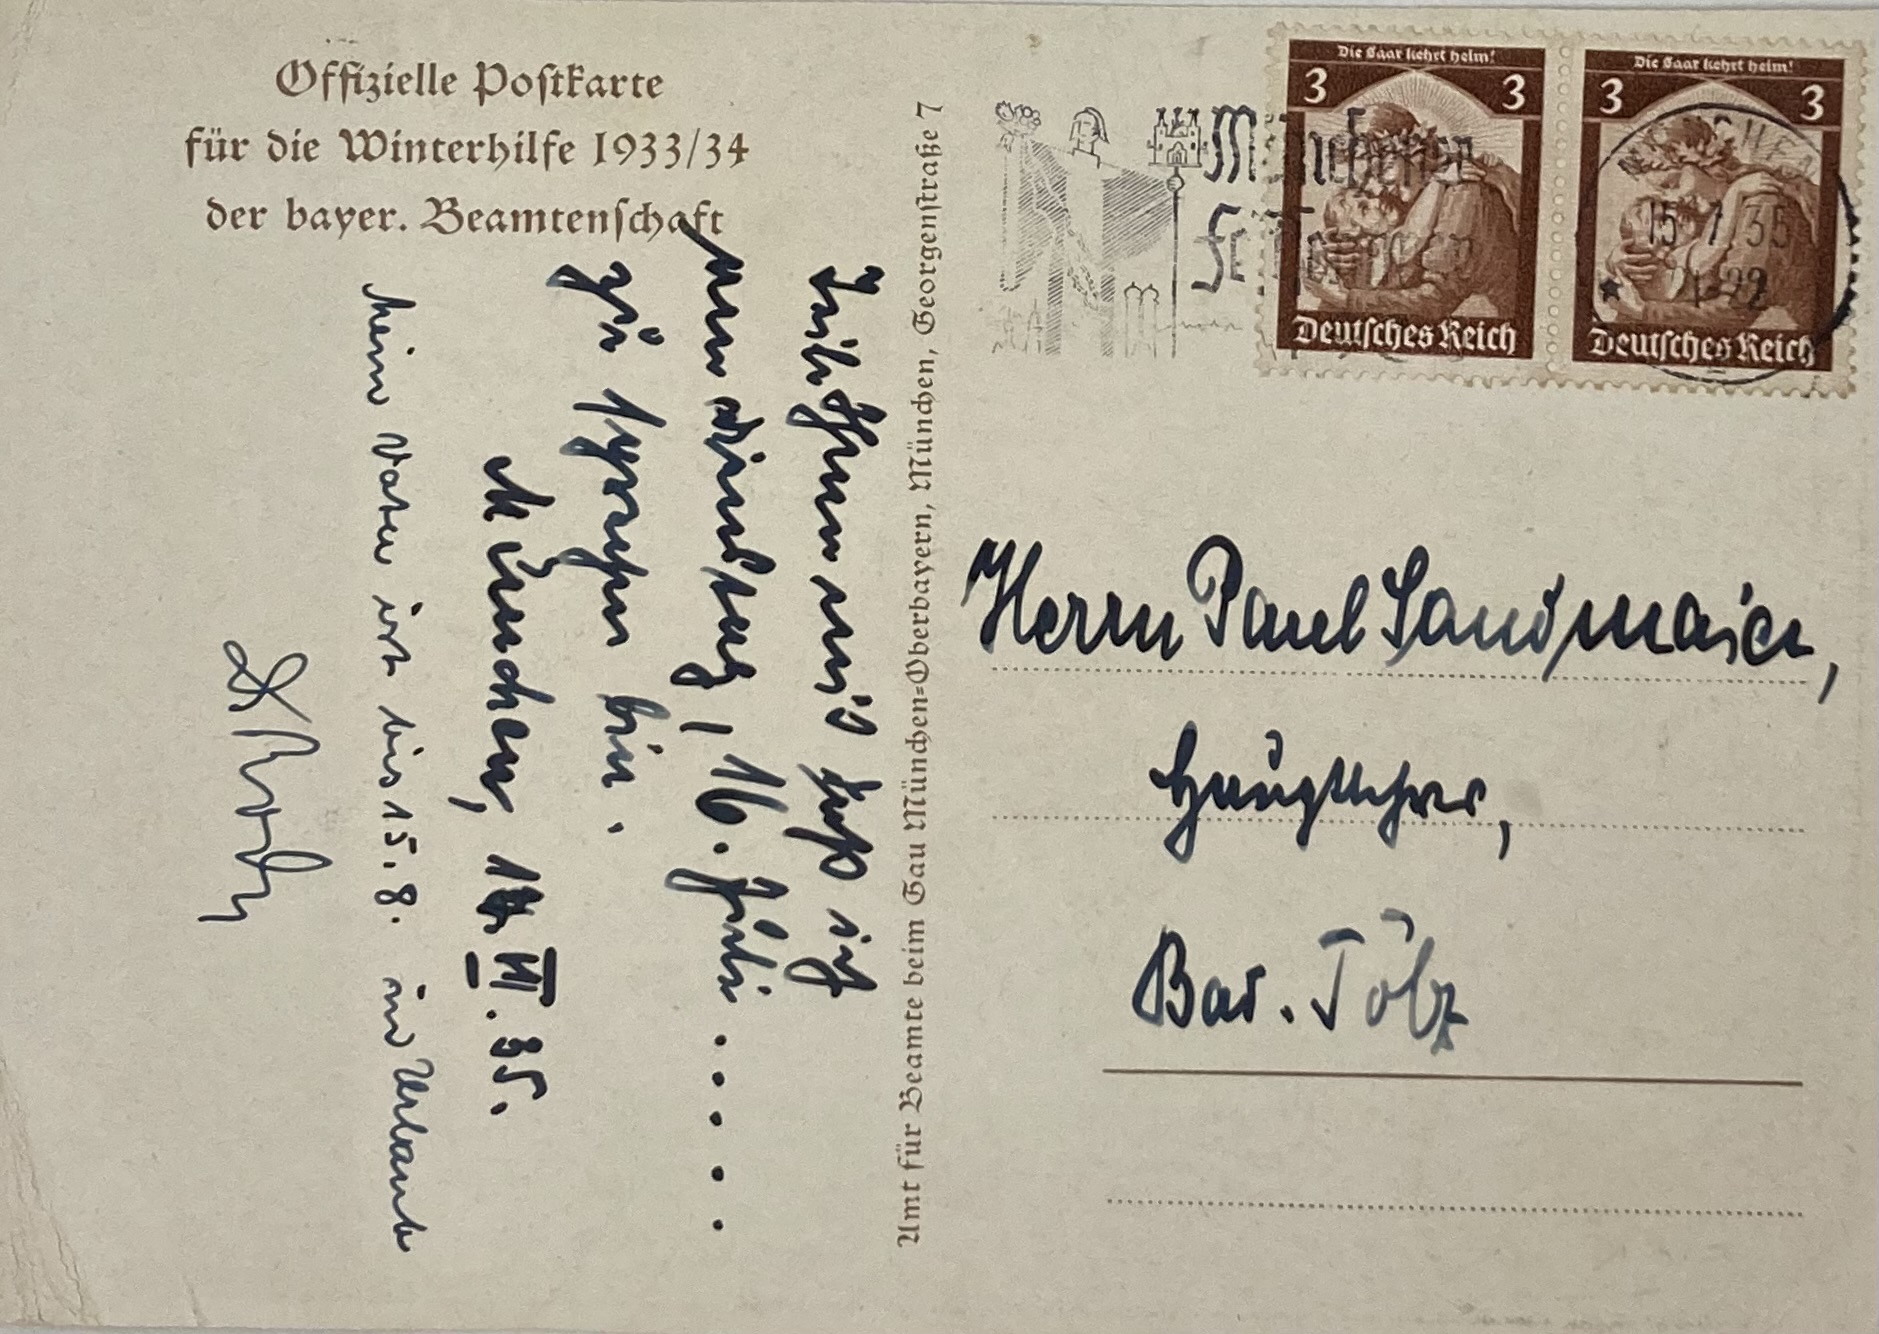 Offizielle Postkarte
für die Winterhilfe 1933/34
der bayer. Beamtenschaft
Teile Ihnen mit, daß ich
nun Dienstag, 16. Juli . . . . .
zu sprechen bin.
München, VII. 35.
Mein Vater ist bis 15. 8. in Urlaub
Amt für Beamte beim Gau München-Oberbayern, München, Georgenstraße 7
Münchener
Die Saar kehrt heim!
3 3
Deutsches Reich
Die Saar kehrt heim!
3 3
Deutsches Reich
MÜNCHEN
15 7 35
21-22
Herrn Paul Sandmaier,
Hauptlehrer,
Bad. Tölz